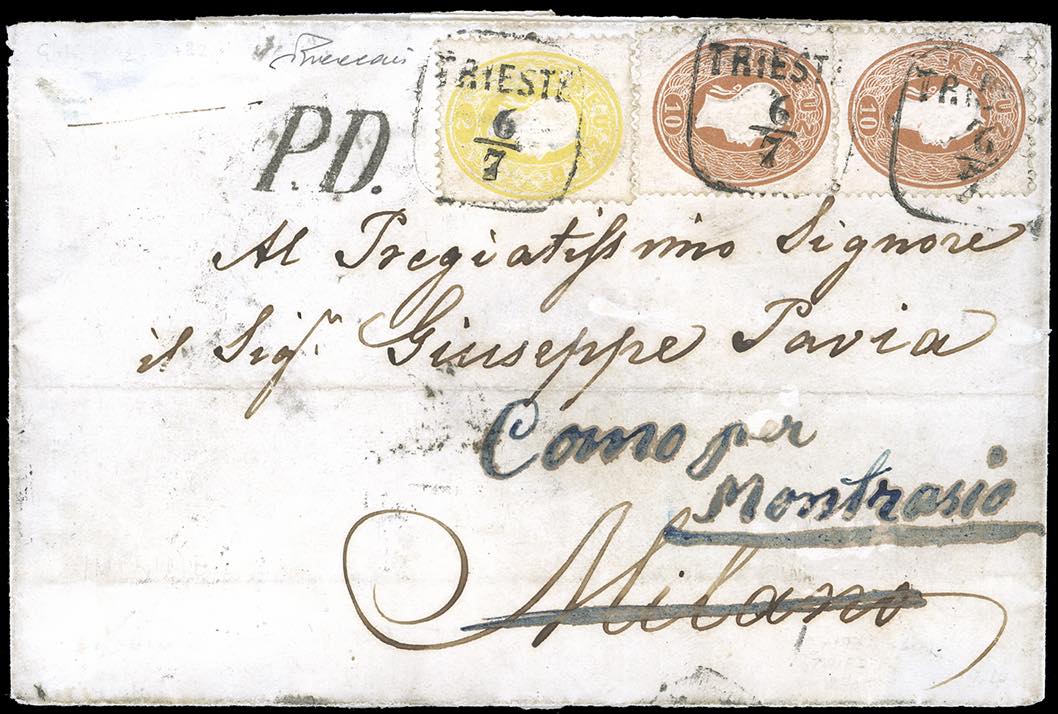 P.D.
TRIESTE
6/7
10 KREUZ
TRIEST
6/7
10 KREUZ
TRI
Al Pregiatissimo Signore
il Sigr. Giuseppe Pavia
Como per
Montrasio
Milano